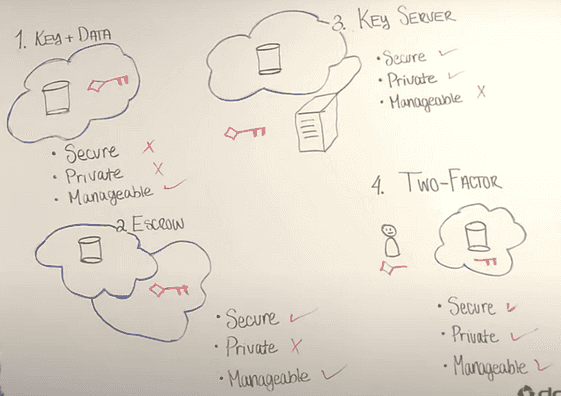 1. KEY + DATA
• Secure ✗
• Private ✗
• Manageable ✓
2 ESCROW
• Secure ✓
• Private ✗
• Manageable ✓
3. KEY SERVER
• Secure ✓
• Private ✓
• Manageable ✗
4. TWO-FACTOR
• Secure ✓
• Private ✓
• Manageable ✓